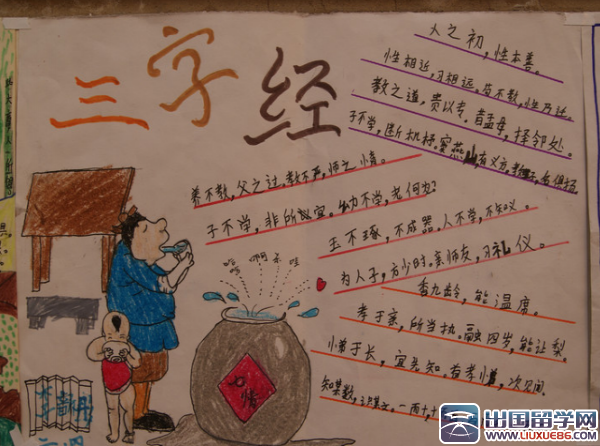 三字经
人之初，性本善。
性相近，习相远。苟不教，性乃迁。
教之道，贵以专。昔孟母，择邻处。
子不学，断机杼。窦燕山，有义方，教五子，名俱扬
养不教，父之过，教不严，师之惰。
子不学，非所宜。幼不学，老何为？
玉不琢，不成器。人不学，不知义。
为人子，方少时，亲师友，习礼仪。
香九龄，能温席。
孝于亲，所当执。融四岁，能让梨。
悌于长，宜先知。首孝悌，次见闻。
知某数，识某文。一而十，十
出国留学网
WWW.LIUXUE86.COM